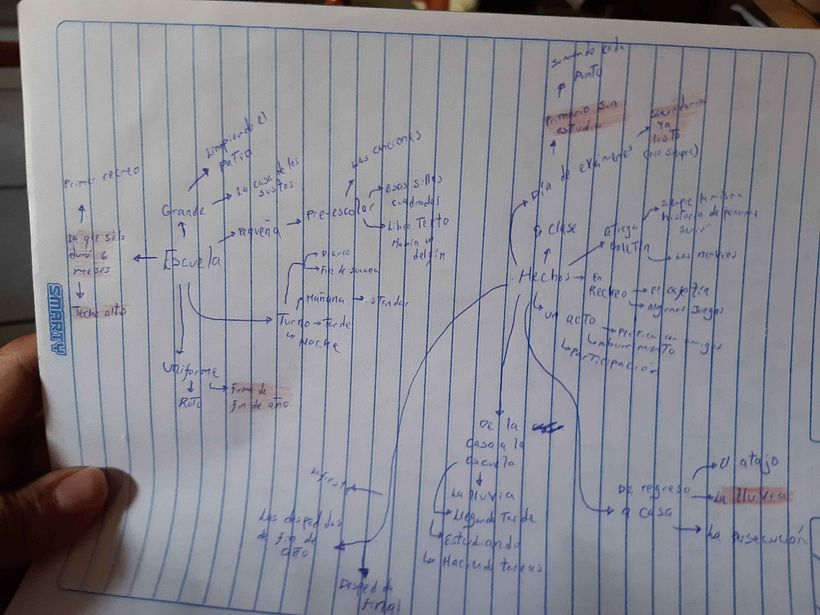 Primer recreo
Limpiando el
patio
Grande
La casa de los
sustos
La que sólo
duró 6
meses
Techo alto
Escuela
Pequeña
Pre-escolar
Las canciones
Esas sillas
cuadradas
Libro Texto
delfín
Turno
Diario
Fin de semana
Mañana
Tarde
Noche
Uniforme
Roto
Firma de
fin de año
Hechos
En clase
Día de exámenes
Primario sin
estudiar
Sumando cada
punto
Secundaria
Ya
listo
(No siempre)
boletín
Siempre la misma
historia de ponerme
Los nervios
En
Recreo
Algunos Juegos
un acto
Práctica con amigos
Aburrimiento
Participación
De la
casa a la
escuela
La lluvia
Llegando tarde
Estudiando
Haciendo tareas
De regreso
a casa
El atajo
La lluvia
La persecución
Las despedidas
de fin de
año
La fiesta
Despedida
Final
SMARTY